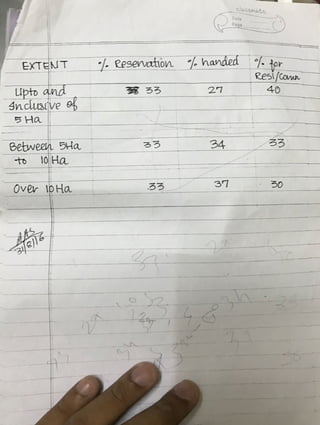 classmate
Date
Page
EXTENT % Reservation % handed % for
Resi/Comm
Upto and 33 27 40
Inclusive of
5 Ha
Between 5Ha 33 34 33
to 10 Ha
Over 10Ha 33 37 30
31/8/16